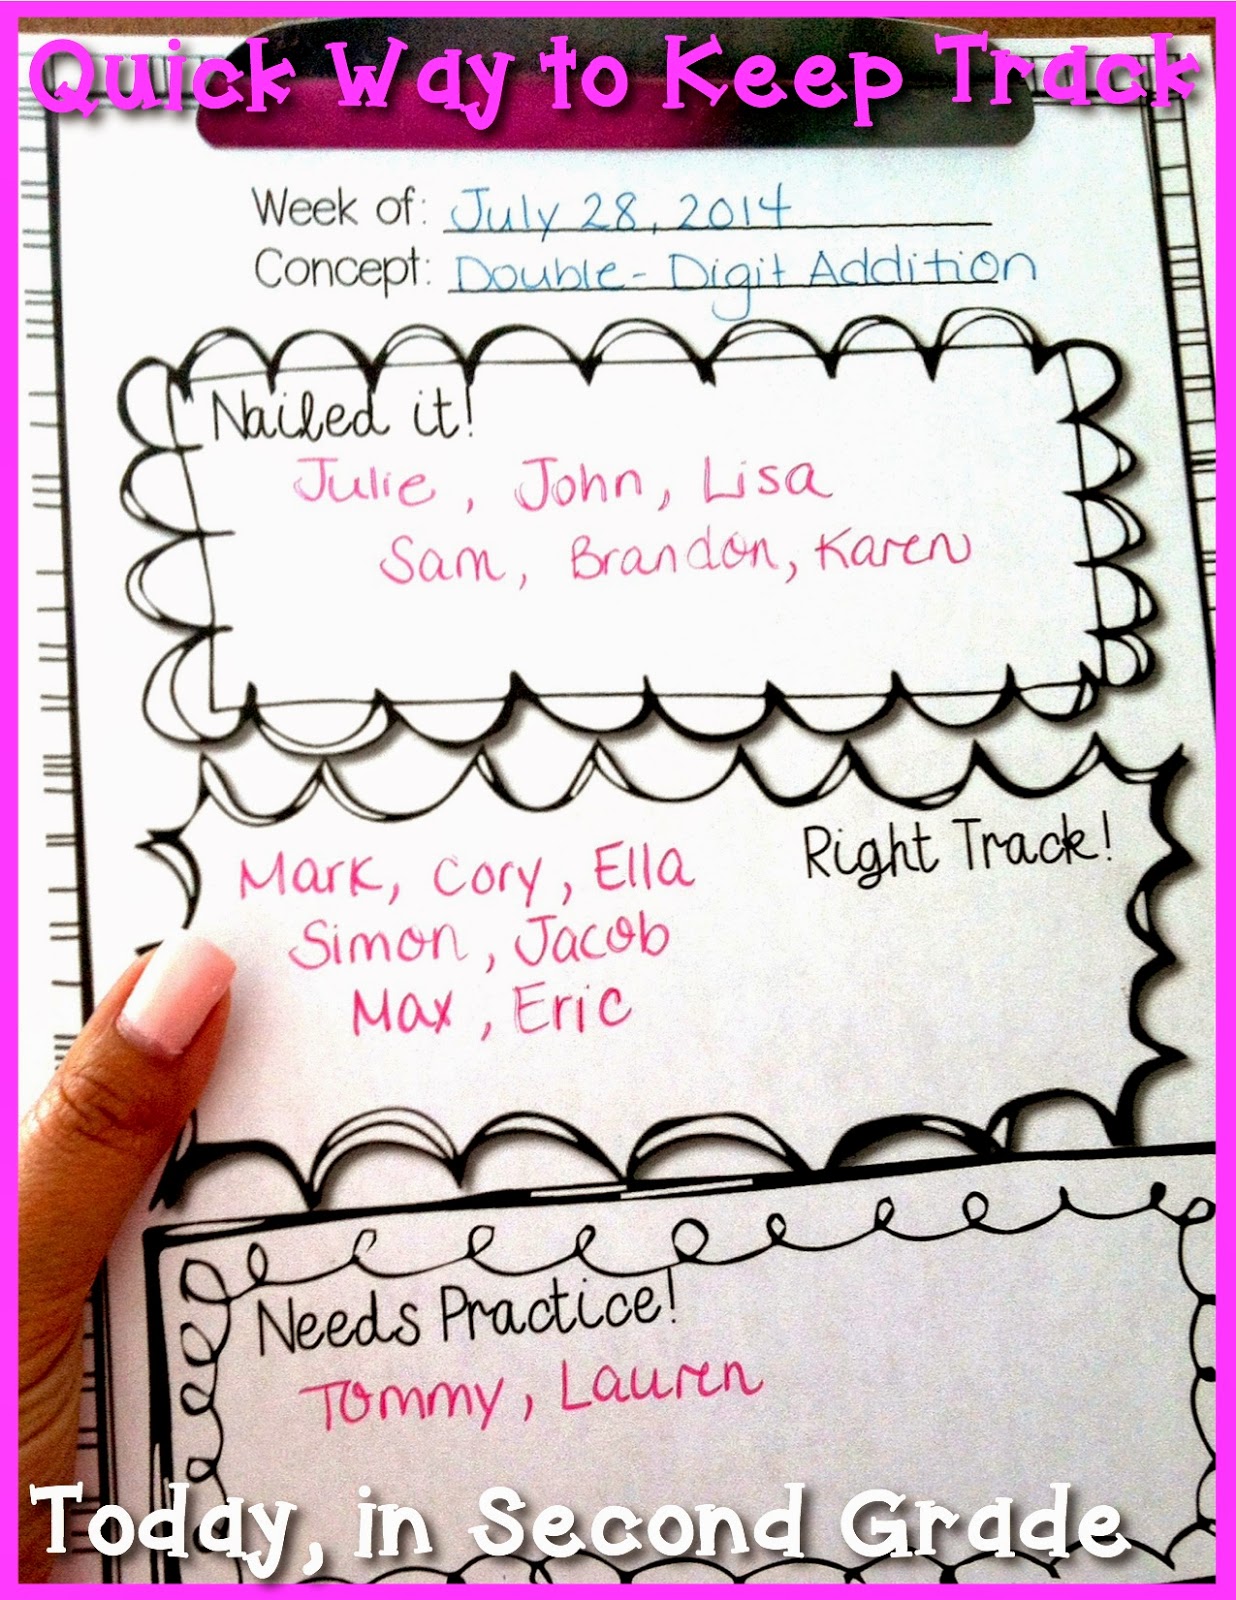 Quick Way to Keep Track
Week of: July 28, 2014
Concept: Double-Digit Addition
Nailed it!
Julie, John, Lisa
Sam, Brandon, Karen
Right Track!
Mark, Cory, Ella
Simon, Jacob
Max, Eric
Needs Practice!
Tommy, Lauren
Today, in Second Grade